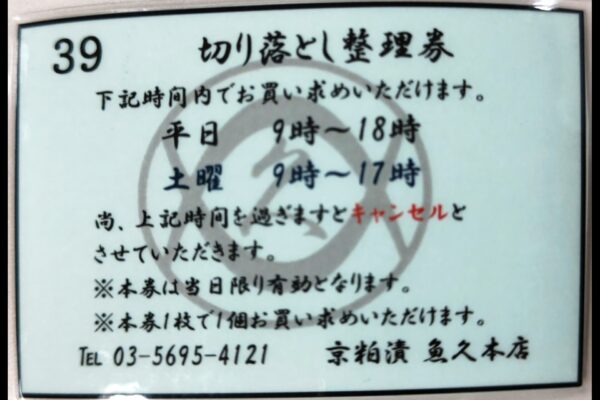 39 切り落とし整理券
下記時間内でお買い求めいただけます。
平日 9時～18時
土曜 9時～17時
尚、上記時間を過ぎますとキャンセルと
させていただきます。
※本券は当日限り有効となります。
※本券1枚で1個お買い求めいただけます。
TEL 03-5695-4121 京粕漬 魚久本店
久